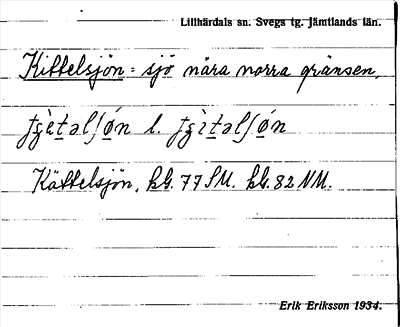 Lillhärdals sn. Svegs tg. Jämtlands län.
Kittelsjön = sjö nära norra gränsen,
l.
Kättelsjön, kbl. 77 SM. kbl. 82 NM.
Erik Eriksson 1934.